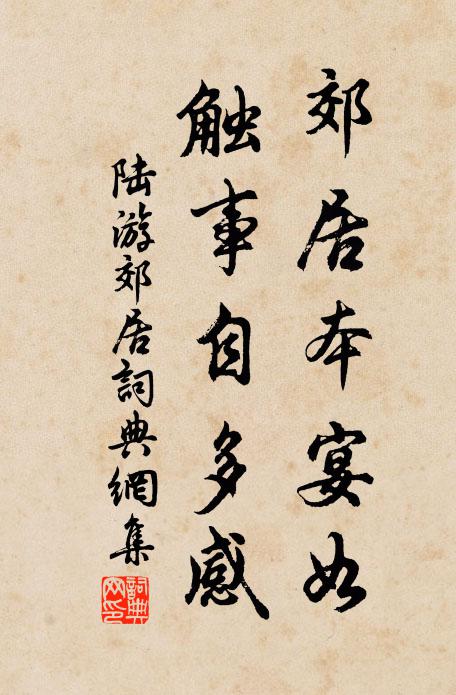 郊居本宴如
触事自多感
陆游郊居詞典網集
詞典网印